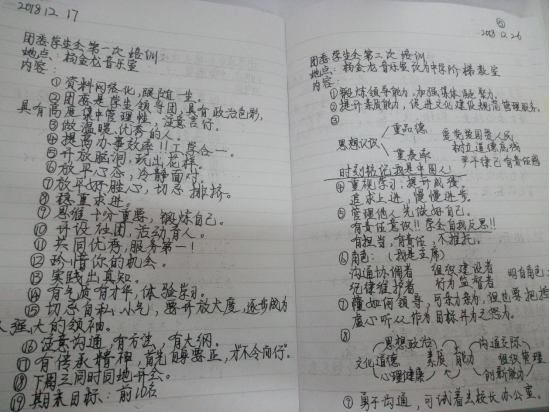 2018.12.17
团委学生会第一次培训
地点:杨金龙音乐室
内容:
①资料网络化,跟随一生。
②团委是学生领导团,具有政治色彩,
具有高度集中管理性,注意言行。
③做温暖优秀的人。
④提高办事效率!!工学合一。
⑤开放脑洞,玩出花样。
⑥放平心态,冷静面对。
⑦放平好胜心,切忌排挤。
⑧稳重求进。
⑨思维十分重要,锻炼自己。
⑩开设社团,活动育人。
⑪共同优秀,服务第一!
⑫珍惜你的机会。
⑬实践出真知。
⑭有气质有才华,体验学习。
⑮切忌自私、小气,要开放大度,逐步成为
人强大的领袖。
⑯注意沟通,有方法,有大纲。
⑰有传承精神,首先自要正,才“不令而行”。
⑱下周三同时同地开会。
⑲期末目标:前10名
2018.12.26
团委学生会第二次培训
地点:杨金龙音乐室改为中学阶梯教室
内容:
①锻炼领导能力,加强集体凝聚力。
②提升素质能力,促进文化建设规范管理服务。
③
重品德
爱党爱国爱人民
思想认识
树立道德底线
重表率
严于律己有责任感
时刻铭记我是中国人!
④重视学习,提升成绩。
追求上进,慢慢进步。
⑤管理他人先做好自己。
有责任意识!!学会自我反思!!
有担当,有责任,不推托。
⑥角色:(我是主角)
沟通协调者 组织建设者
明白角色
纪律维护者 行为监督者
⑦懂如何领导,可亲力亲为,但也要把握
虚心听从作为目标并为之努力。
⑧
思想政治 沟通交际
文化道德 素质 能力 组织管理
心理健康 创新能力
⑨勇于沟通,可试着去校长办公室。